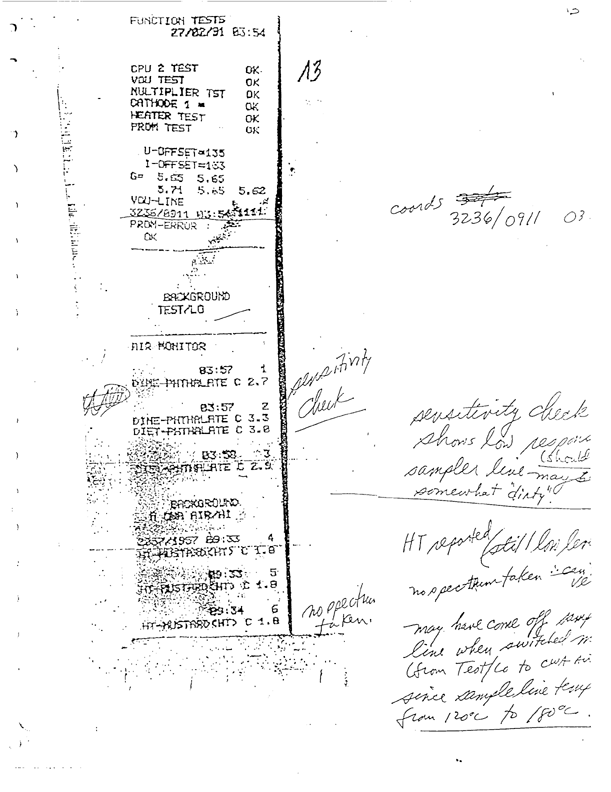 FUNCTION TESTS
27/02/91 03:54
13
CPU 2 TEST OK
VDU TEST OK
MULTIPLIER TST OK
CATHODE 1 = OK
HEATER TEST OK
PROM TEST OK
U-OFFSET=135
I-OFFSET=133
G= 5.65 5.65
5.71 5.65 5.62
VDU-LINE
3236/0911 03:54 1111
PROM-ERROR :
OK
coords
3236/0911 03
BACKGROUND
TEST/LO
AIR MONITOR
03:57 1
DIME-PHTHALATE C 2.7
03:57 2
DIME-PHTHALATE C 3.3
DIET-PHTHALATE C 3.0
03:58 3
PHTHALATE C 2.9
sensitivity
check
sensitivity check
shows low
(should
sampler line may
somewhat "dirty"
BACKGROUND
AIR/HI
09:33 4
HT-MUSTARD(HT) C 1.8
09:33 5
HT-MUSTARD(HT) C 1.8
09:34 6
HT-MUSTARD(HT) C 1.8
HT reported (still low
no spectrum taken
no spectrum
taken.
may have come off
line when switched
(from Test/Lo to CWA
since sample line temp
from 120°C to 180°C.